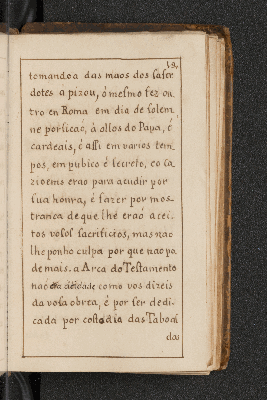 19,
tomandoa das maos dos saser
dotes a pizou, ó mesmo fez ou
tro en Roma em dia de solem
ne porsicaó, à ollos do Papa, é
cardeais, é assi em varios tem
pos, em pubico é secreto, co ca
zioems erao para acudir por
sua honra, é fazer por mos-
tranca de que lhe eraó acei
tos vosos sacrificios, mas nao
lhe ponho culpa por que nao po
de mais. a Arca do Testamento
naó era deidade como vos dizeis
da vosa obrea, é por ser dedi-
cada por custodia das Taboas
das